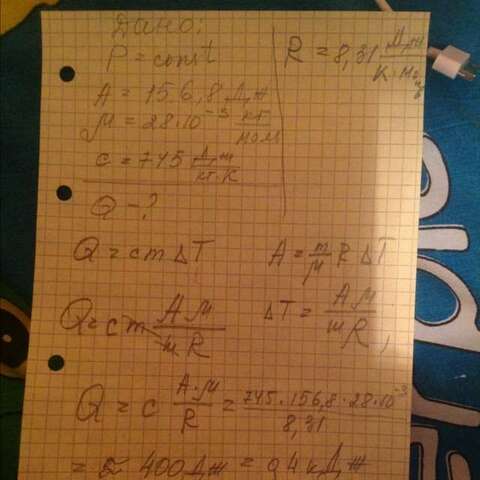 Дано:
P = const
A = 156,8 Дж
M = 28·10⁻³ кг/мол
c = 745 Дж/кг·К
Q - ?
R = 8,31 Дж/К·моль
Q = cm ΔT
A = m/M R ΔT
Q = cm AM/mR
ΔT = AM/mR,
Q = c A·M/R = 745·156,8·28·10⁻³/8,31
= ≈ 400 Дж = 0,4 кДж